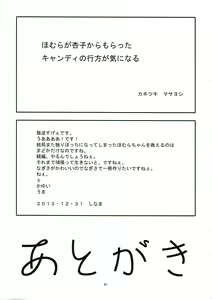 ほむらが杏子からもらった
キャンディの行方が気になる
カネツキ マサヨシ
叛逆すげぇです。
うああああ!です!
結局また独りぼっちになってしまったほむらちゃんを救えるのは
まどかだけなのですね。
続編、やるんでしょうねぇ。
それまで頑張って生きないと、ですねぇ。
なぎさがかわいいのでなぎさで一冊作りたいですねぇ。
ねぇ。
ぇ
かゆい
うま
2013・12・31 しなま
あとがき